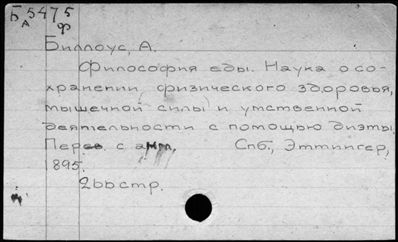 Б 5475
А ф
Биллоус, А.
Философия еды. Наука о со-
хранении физического здоровья,
мышечной силы и умственной
деятельности с помощью диэты.
Перев. с англ. Спб., Эттингер,
1895.
266 стр.